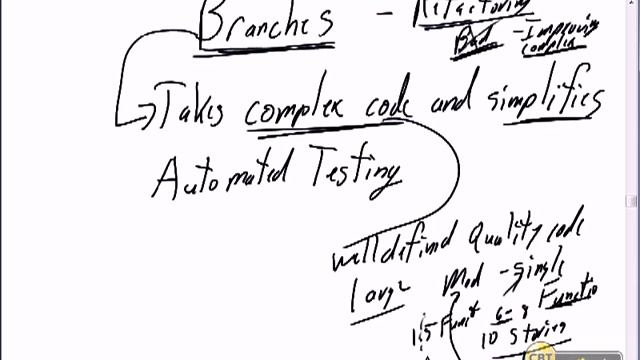 Branches - Refactoring
Bad - Improving
complex
Takes complex code and simplifies
Automated Testing
well defind Quality code
large Mod - single
Functio
6-8
10 String
CBT